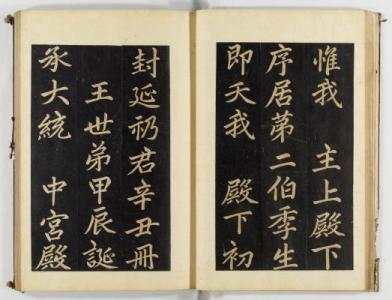 惟我 主上殿下
序居第二伯季生
即天我 殿下初
封延礽君辛丑冊
王世弟甲辰誕
承大統 中宮殿